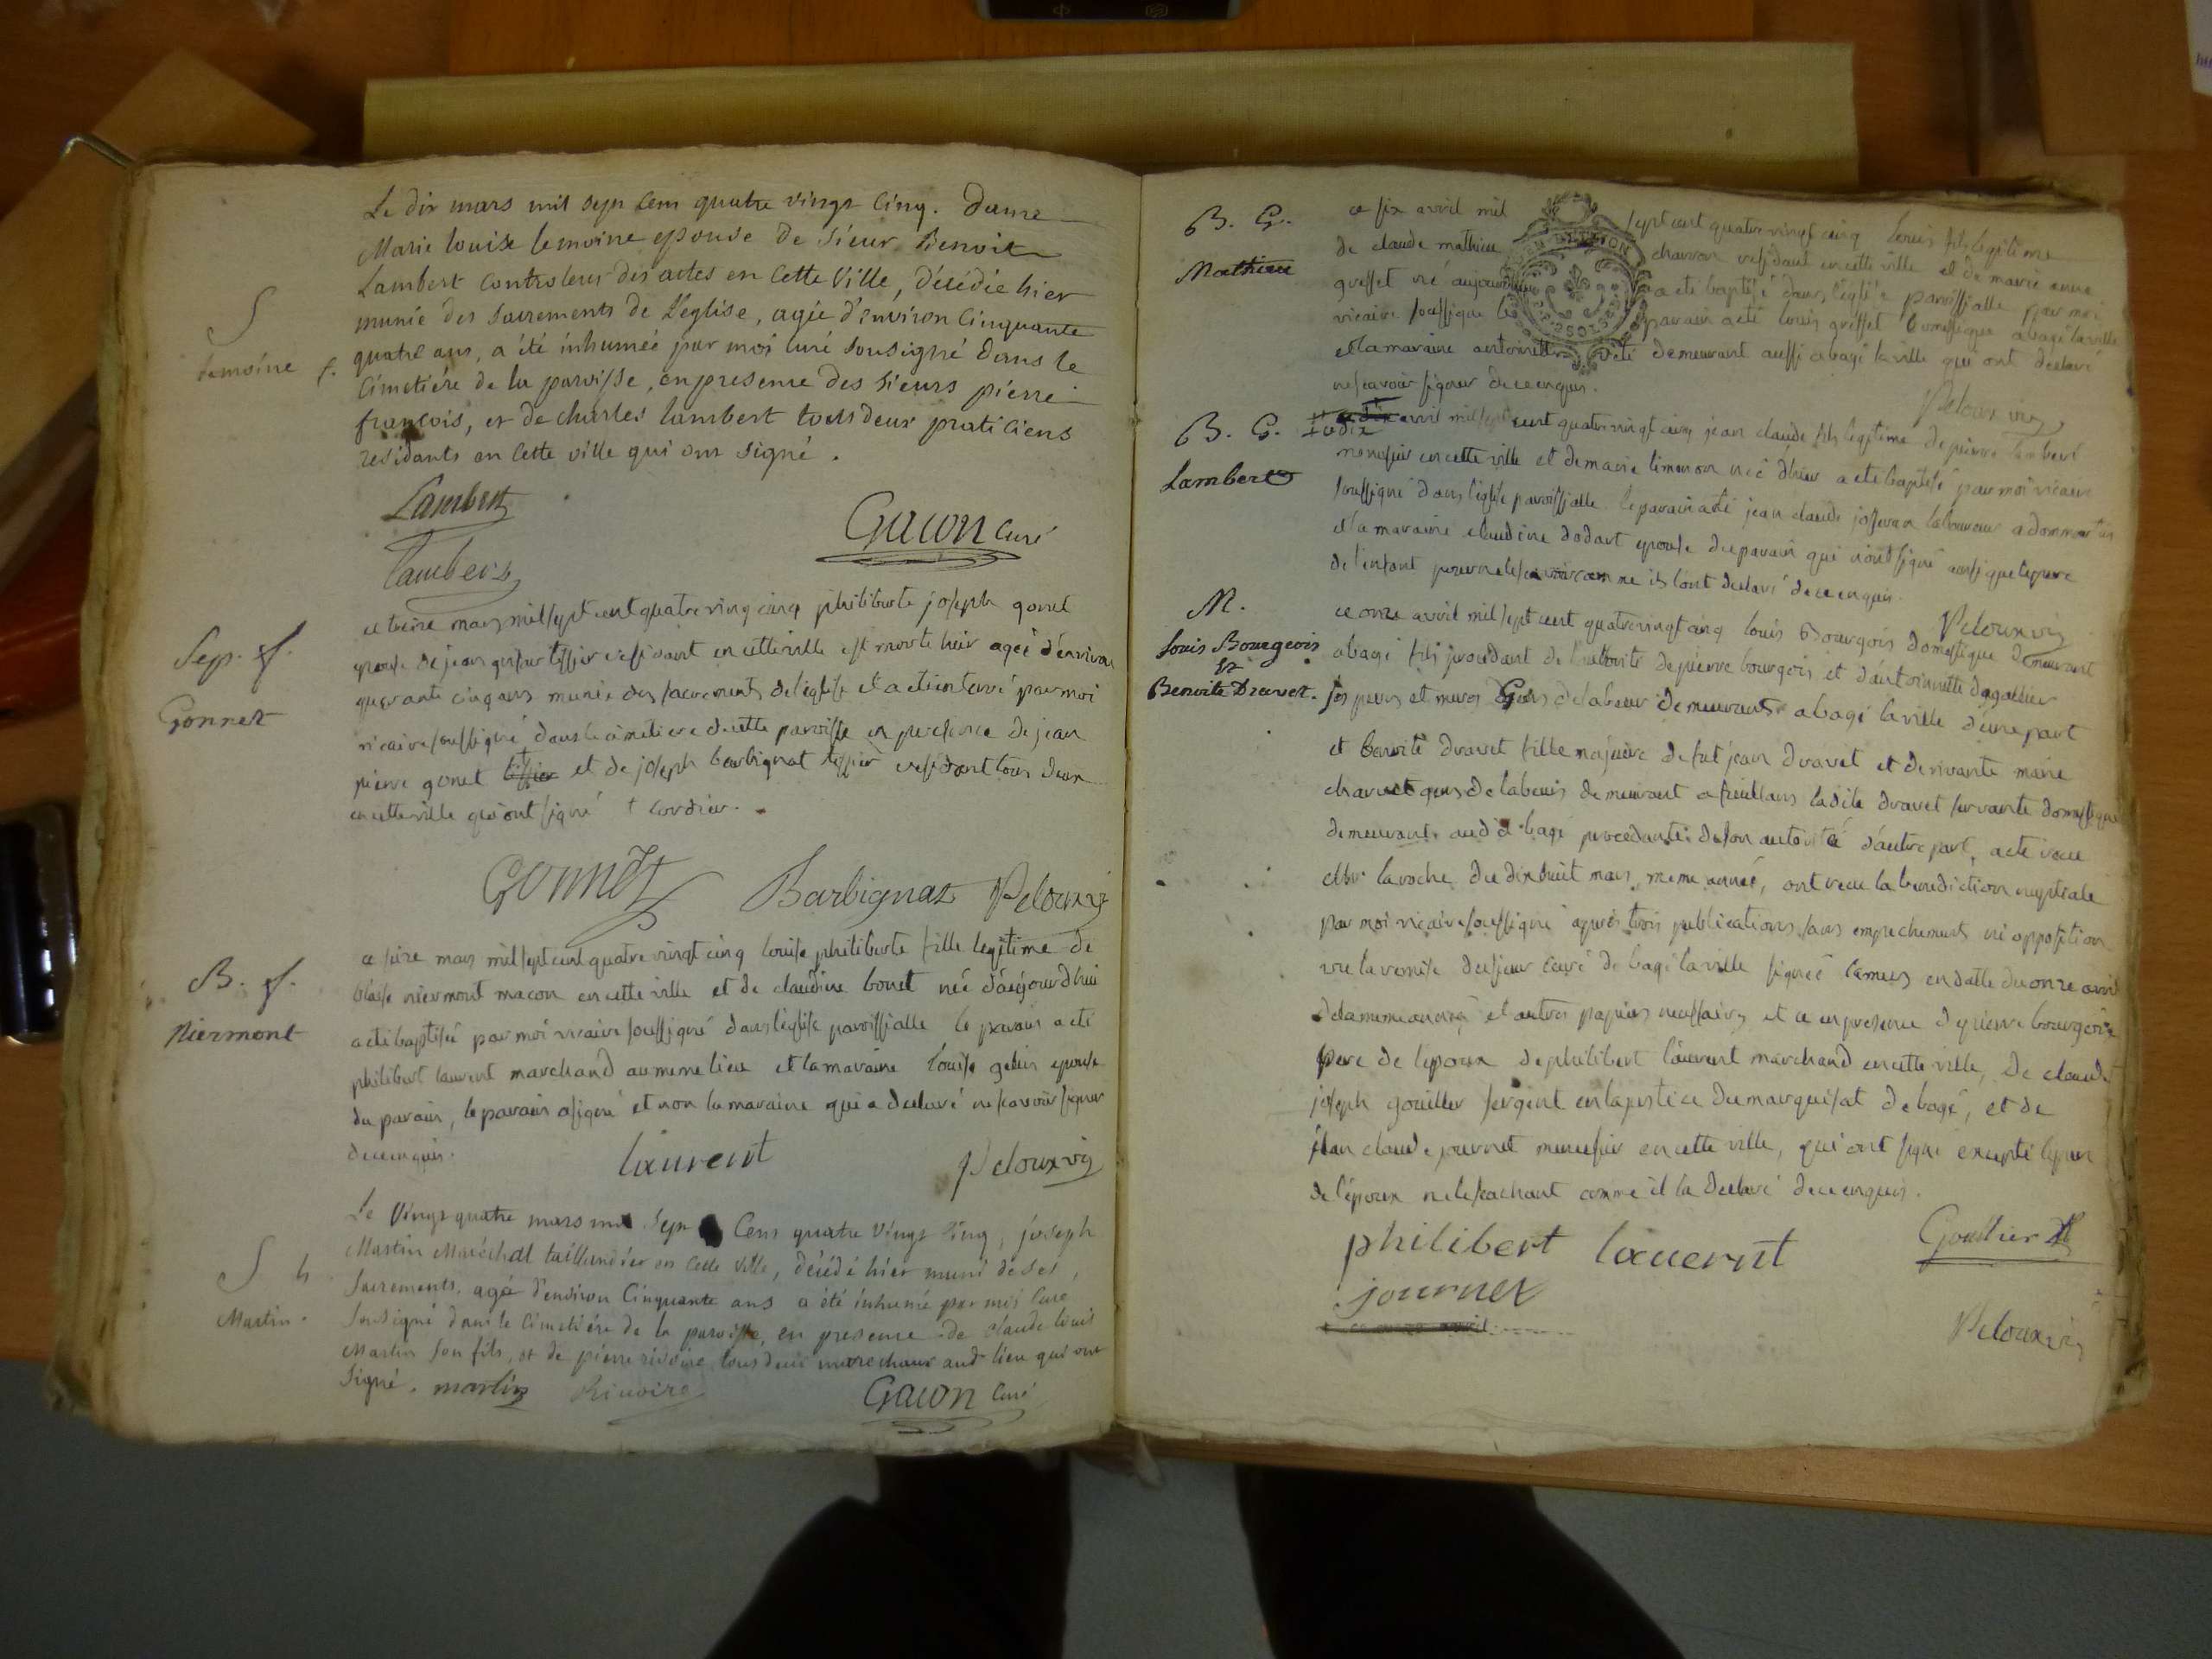 Le dix mars mil sept cent quatre vingt cinq. Dame
Marie louise lemoine epouse de Sieur Benoit
Lambert Controleur des actes en cette Ville, décédée hier
S
munie des Sacrements de L'eglise, agée d'environ Cinquante
Lemoine f.
quatre ans, a été inhumée par moi curé Sousigné dans le
Cimetiére de la paroisse, en presence des Sieurs pierre
françois, et de charles lambert tous deux praticiens
residants en cette ville qui ont signé.
Lambert
Gacon Curé
Lambert
ce treize mars mil sept cent quatre vingt cinq philiberte joseph gonet
Sep. f.
epouse de jean tissier residant en cette ville est morte hier agée d'environ
Gonnet
quarante cinq ans munie des sacrements de l'église et a été enterré par moi
vicaire soussigné dans le cimetiere de cette paroisse en presence de jean
pierre gonet et de joseph barbignat tissier residant tous deux
en cette ville qui ont signé † cordier.
Gonnet Barbignat Peloux vic
ce seize mars mil sept cent quatre vingt cinq louise philiberte fille legitime de
B. f.
blaise niermont macon en cette ville et de claudine bonet née d'aujourdhui
Niermont
a été baptisée par moi vicaire soussigné dans l'église paroissialle le parain a été
philibert laurent marchand au meme lieu et la maraine louise gelin epouse
du parain, le parain a signé et non la maraine qui a declaré ne scavoir signer
de ce enquis.
laurent
Peloux vic
Le Vingt quatre mars mil Sept Cent quatre Vingt Cinq, joseph
S h
Martin Maréchal taillandier en Cette Ville, décédé hier muni de ses
Sacrements, agé d'environ Cinquante ans a été inhumé par moi Curé
Martin.
Sousigné dans le Cimetiére de la paroisse, en presence de Claude louis
Martin Son fils, et de pierre rivoire tous deux marechaux aud. lieu qui ont
Signé. martin Rivoire Gacon Curé
B. G.
ce six avril mil sept cent quatre vingt cinq louis fils legitime
Mathieu
de claude mathieu charron residant en cette ville et de marie anne
greffet né aujourdhui a eté baptisé dans l'église paroissialle par moi
vicaire soussigné le parain a été louis greffet domestique a bagé la ville
et la maraine antoinette demeurant aussi a bagé la ville qui ont declaré
ne scavoir signer de ce enquis.
Peloux vic
B. G.
ce dix avril mil sept cent quatre vingt cinq jean claude fils legitime de pierre lambert
Lambert
menusier en cette ville et de marie limonon né d'hier a eté baptisé par moi vicaire
soussigné dans l'église paroissialle le parain a été jean claude josseran laboureur a dommartin
et la maraine claudine dodart epouse du parain qui n'ont signé ainsi que le pere
de l'enfant pour ne le scavoir comme ils l'ont declaré de ce enquis.
Peloux vic
M.
ce onze avril mil sept cent quatre vingt cinq louis Bourgois domestique demeurant
Louis Bourgeois
&
Benoite Dravet.
a bagé fils procedant de l'autorité de pierre bourgois et d'antoinette dagallier
ses peres et meres Gens de labeur demeurants a bagé la ville d'une part
et benoite dravet fille majeure de fut jean dravet et de vivante marie
charvet gens de labeurs demeurant a feuillans ladite dravet servante domestique
demeurante aud. bagé procedante de son autorité d'autre part, acte recu
laroche du dix huit mars, meme année, ont recu la benediction nuptiale
par moi vicaire soussigné après trois publications sans empechement ni opposition
vu la remise du sieur curé de bagé la ville signée en datte du onze avril
de la meme année et autres papiers necessaires et ce en presence de pierre bourgois
pere de l'epoux de philibert laurent marchand en cette ville, de claude
joseph gouiller sergent en la justice du marquisat de bagé, et de
jean claude journet menusier en cette ville, qui ont signé excepté le pere
de l'époux ne le sachant comme il la declaré de ce enquis.
philibert laurent
journet
Peloux vic